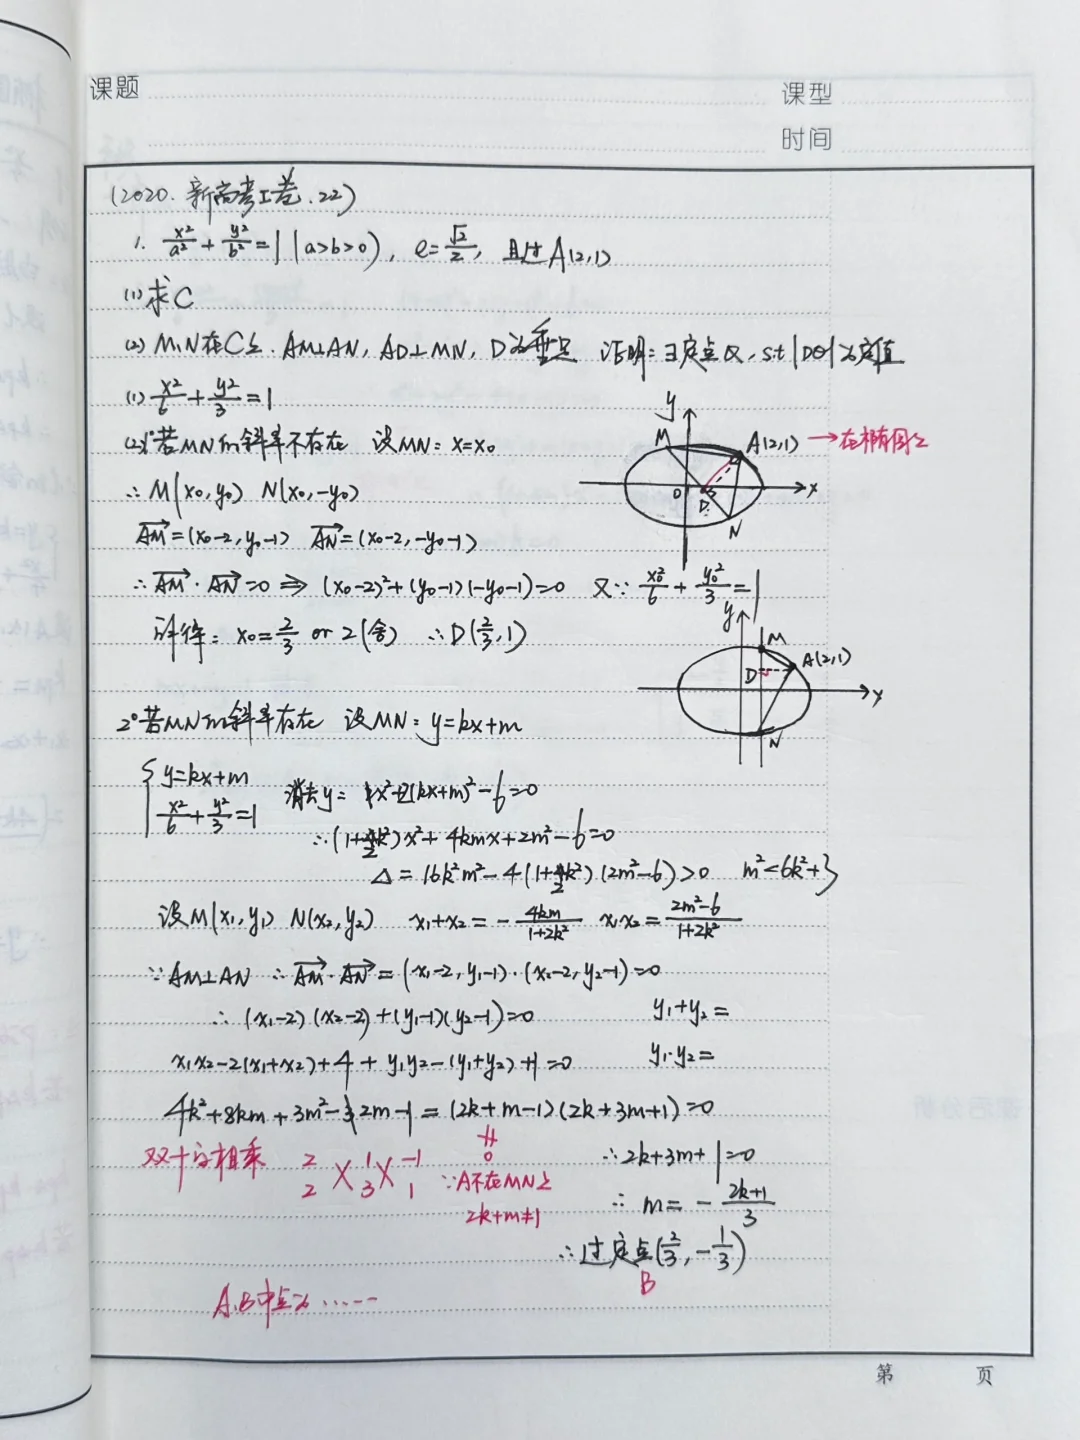 课题
课型
时间
(2020.新高考I卷.22)
1. x²/a² + y²/b² = 1 (a>b>0), e=√2/2, 且过A(2,1)
(1) 求C
(2) M、N在C上. AM⊥AN, AD⊥MN, D为垂足 证明:∃定点Q, s.t |DQ|为定值
(1) x²/6 + y²/3 = 1
(2) 1° 若MN的斜率不存在 设MN: x=x₀
∴ M(x₀,y₀) N(x₀,-y₀)
AM=(x₀-2, y₀-1) AN=(x₀-2, -y₀-1)
∴ AM·AN=0 ⇒ (x₀-2)²+(y₀-1)(-y₀-1)=0 又∵ x₀²/6 + y₀²/3 = 1
解得: x₀=2/3 or 2(舍) ∴D(2/3,1)
y
M
A(2,1) →在椭圆上
O
D
x
N
y
M
A(2,1)
D
x
N
2° 若MN的斜率存在 设MN: y=kx+m
{ y=kx+m
x²/6 + y²/3 = 1
消去y: x²+2(kx+m)²-6=0
∴(1+2k²)x²+4kmx+2m²-6=0
Δ=16k²m²-4(1+2k²)(2m²-6)>0 m²<6k²+3
设M(x₁,y₁) N(x₂,y₂) x₁+x₂=-4km/1+2k² x₁x₂=2m²-6/1+2k²
∵AM⊥AN ∴AM·AN=(x₁-2,y₁-1)·(x₂-2,y₂-1)=0
∴(x₁-2)(x₂-2)+(y₁-1)(y₂-1)=0 y₁+y₂=
x₁x₂-2(x₁+x₂)+4+y₁y₂-(y₁+y₂)+1=0 y₁·y₂=
4k²+8km+3m²-2m-1=(2k+m-1)(2k+3m+1)=0
双十字相乘
2 1 -1
2 3 1
≠
0
∵A不在MN上
2k+m≠1
∴2k+3m+1=0
∴ m=-2k+1/3
∴过定点(2/3,-1/3)
B
A、B中点为……
第 页